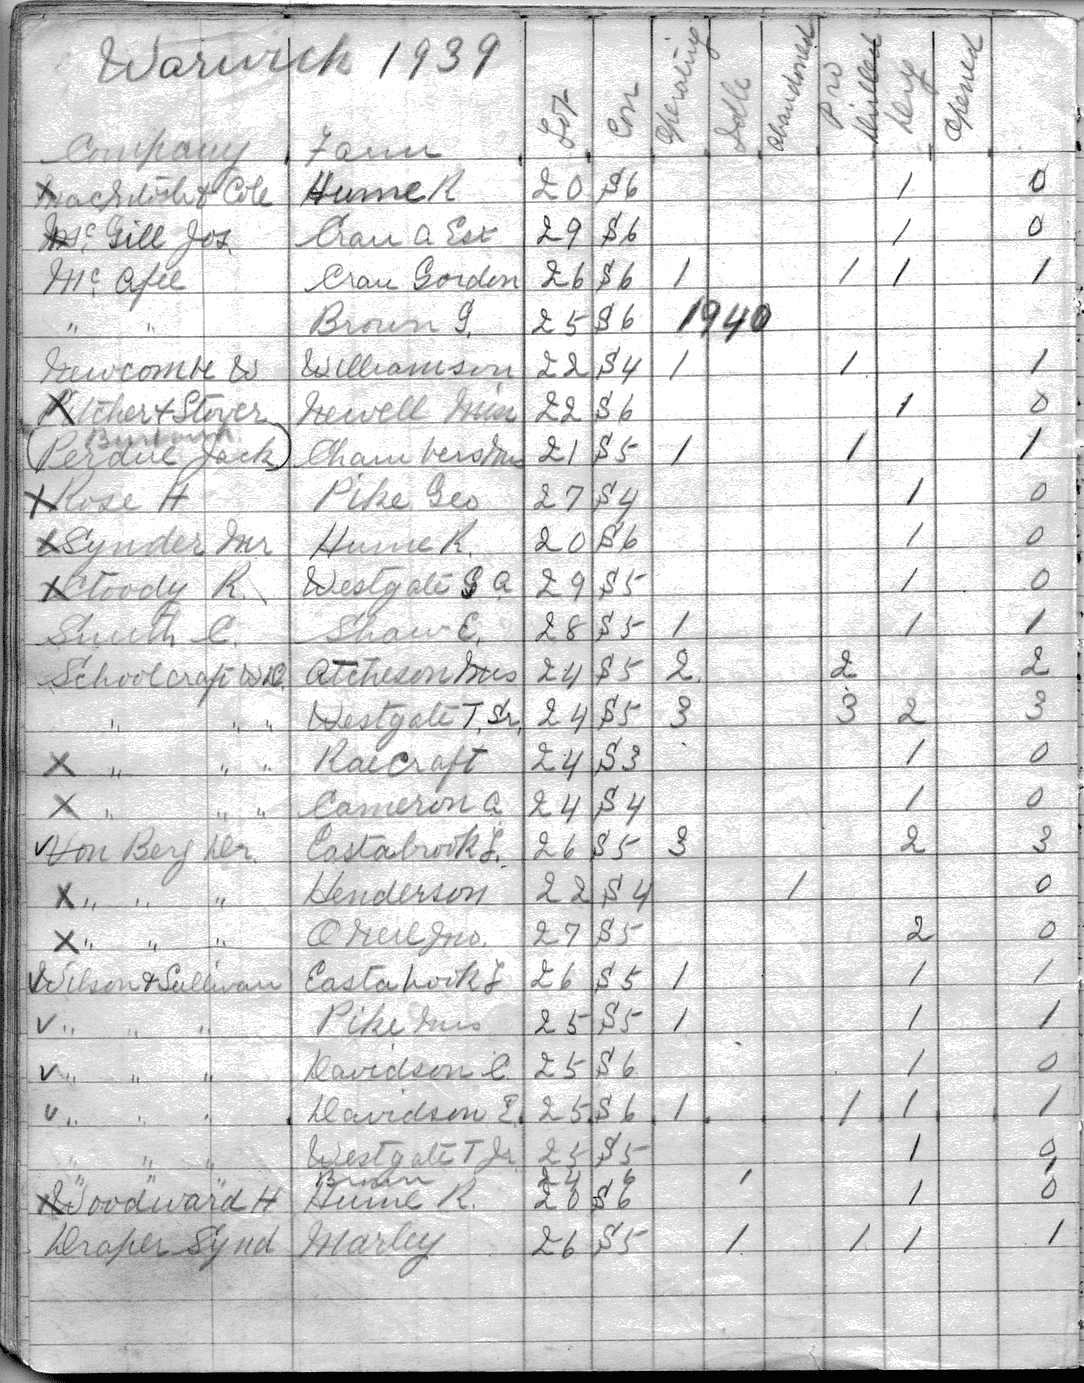 Warwick 1939
Company Farm Lot Con Operating Idle Abandoned Pro Drilled Dry Opened
X MacIntosh & Cole Hume R 20 S6 1 0
X McGill Jos. Cran A Est 29 S6 1 0
McAfee Cran Gordon 26 S6 1 1 1 1
" " Brown G. 25 S6 1940
Newcombe W Williamson 22 S4 1 1 1
X Pitcher & Stover Newell Miss 22 S6 1 0
(Perdue Jack) Chambers Mrs 21 S5 1 1 1
X Rose H Pike Geo 27 S4 1 0
X Synder Mr Hume R. 20 S6 1 0
X Stoody R. Westgate G A 29 S5 1 0
Smith C. Shaw E. 28 S5 1 1 1
Schoolcraft W.D. Atcheson Mrs 24 S5 2 2 2
" " " Westgate T. Sr. 24 S5 3 3 2 3
X " " " Raecraft 24 S3 1 0
X " " " Cameron A 24 S4 1 0
✓ Von Berg Dr. Eastabrook F. 26 S5 3 2 3
X " " " Henderson 22 S4 1 0
X " " " O Neil Jno. 27 S5 2 0
✓ Wilson & Sullivan Eastabrook F 26 S5 1 1 1
✓ " " " Pike Mrs 25 S5 1 1 1
✓ " " " Davidson C. 25 S6 1 0
✓ " " " Davidson E. 25 S6 1 1 1 1
" " " Westgate T Jr. 25 S5 1 0
" " " Brown 24 6 1 1
X Woodward H Hume R. 20 S6 1 0
Draper Synd Marley 26 S5 1 1 1 1